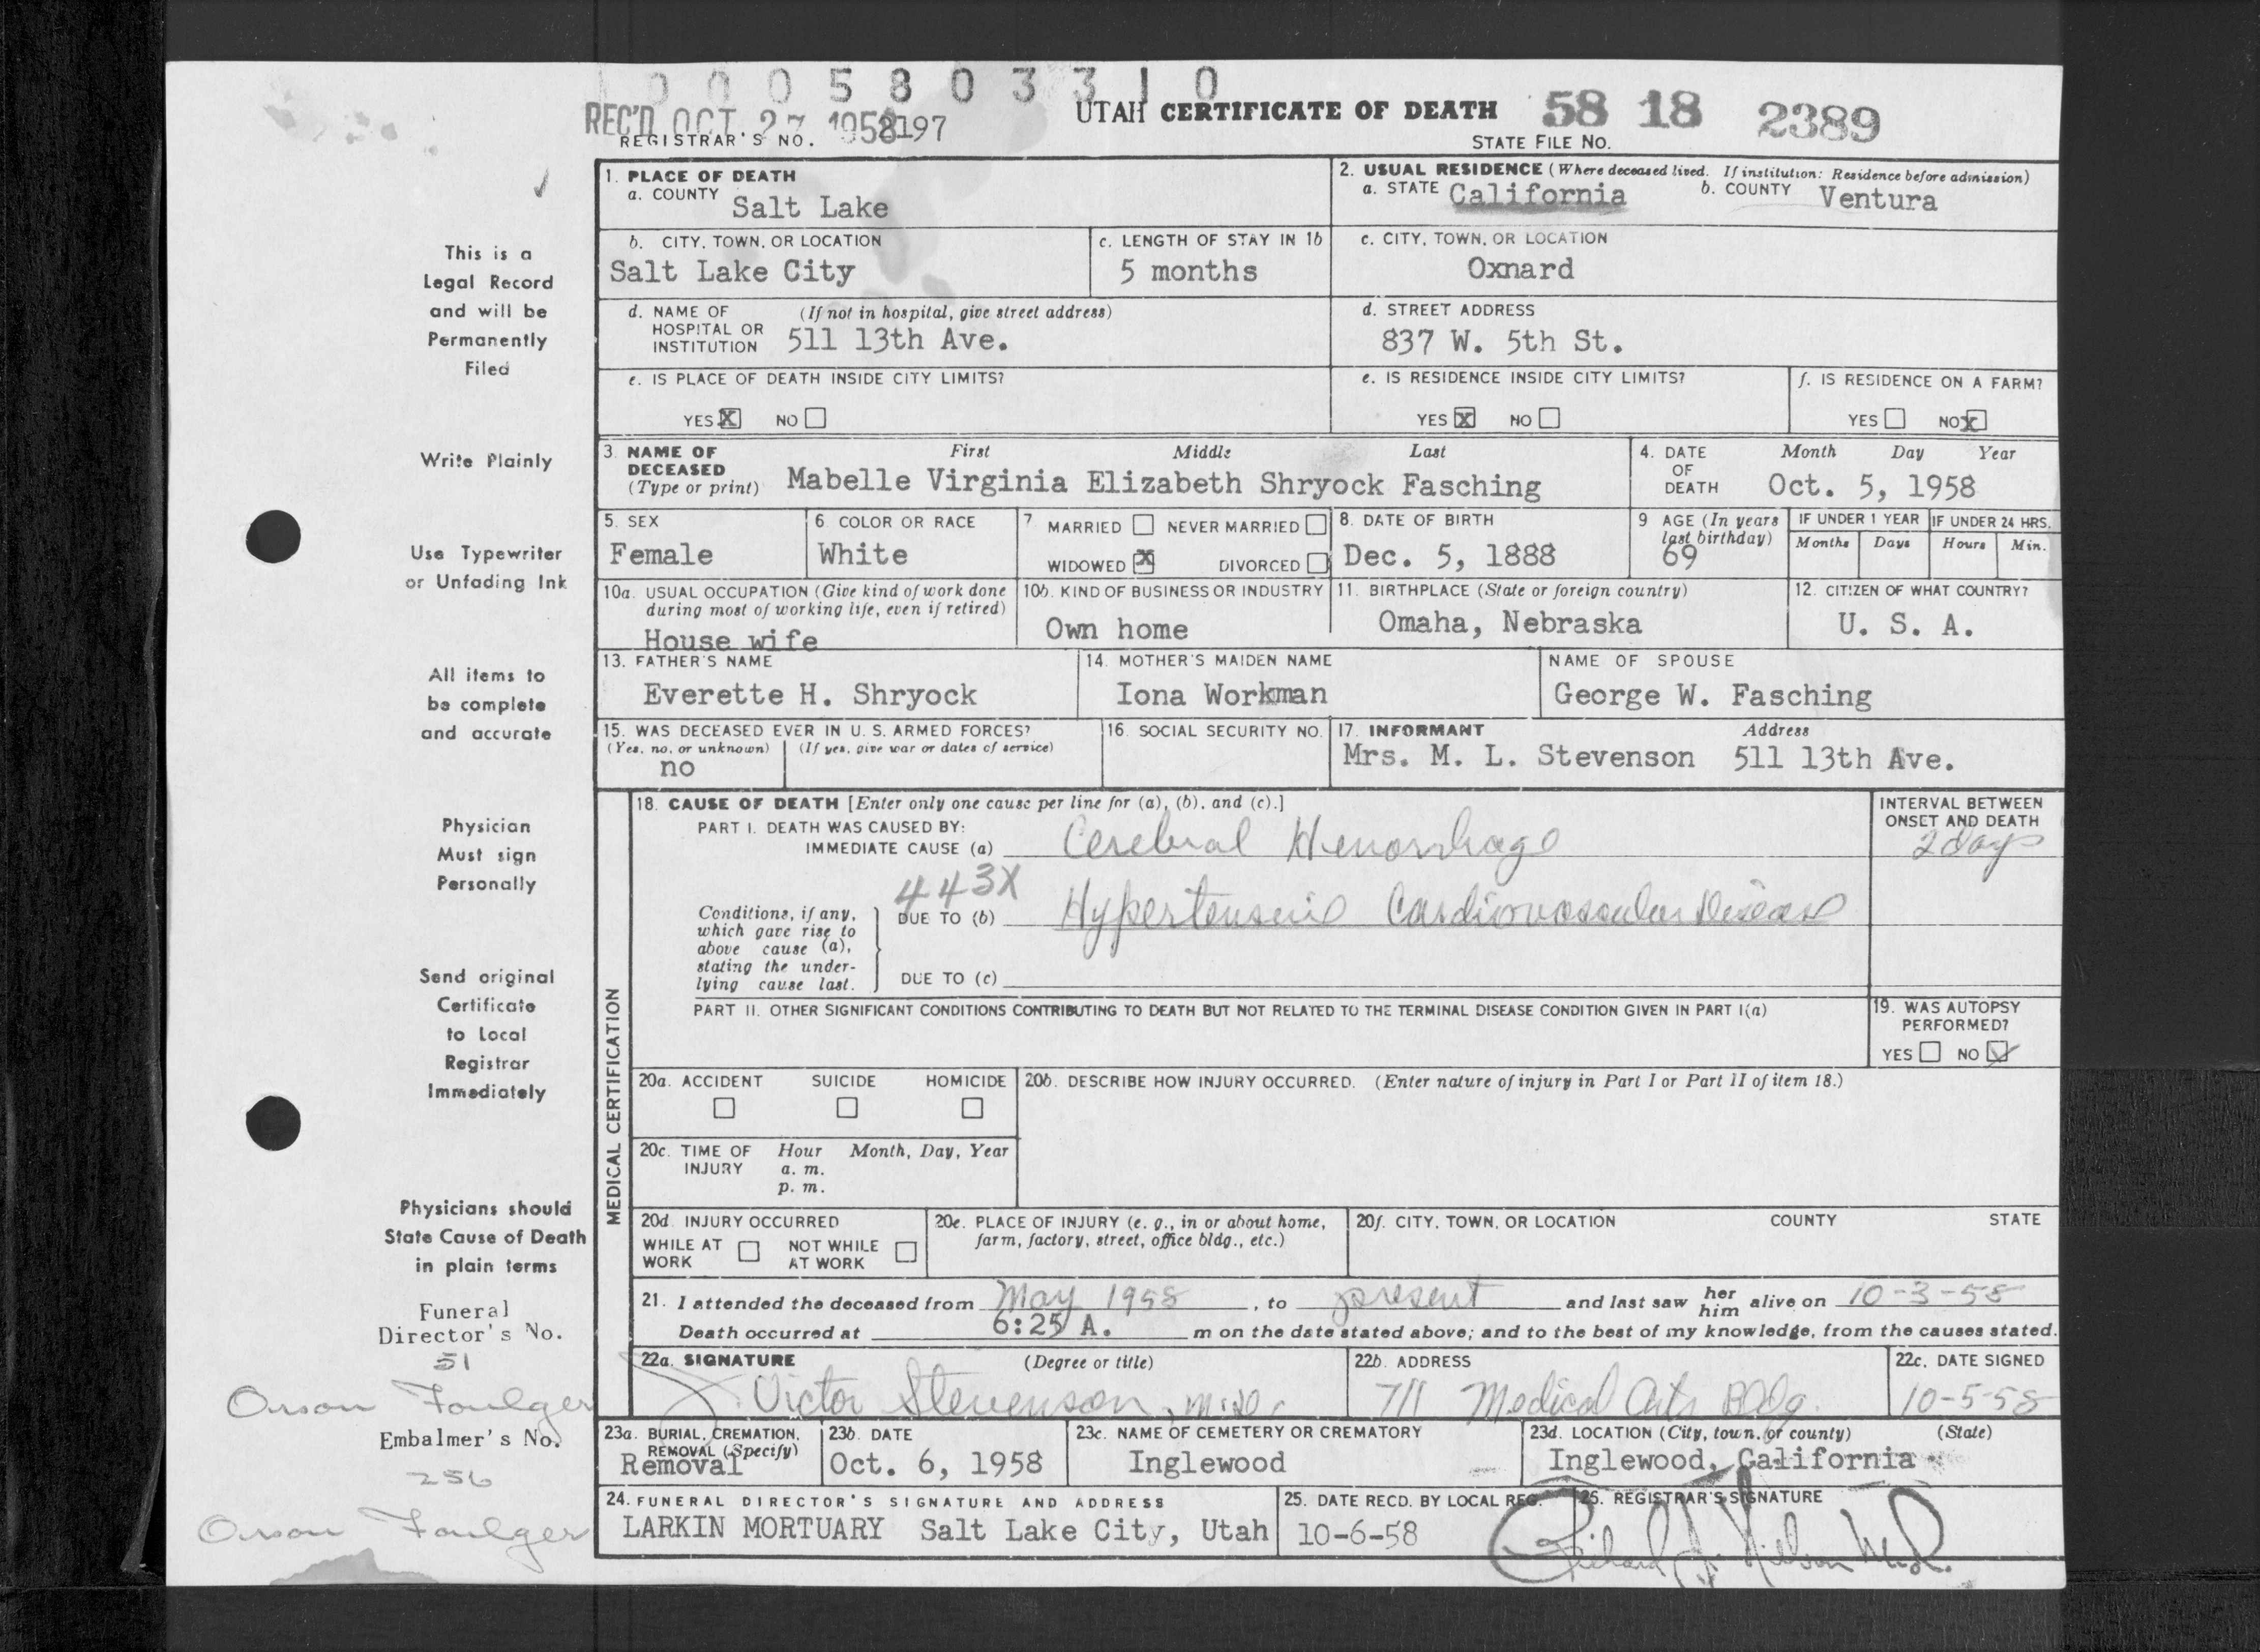 0 0 0 5 8 0 3 3 1 0
REC'D OCT 27 1958
REGISTRAR'S NO. 2197
UTAH CERTIFICATE OF DEATH
58 18 2389
STATE FILE NO.
1. PLACE OF DEATH
a. COUNTY Salt Lake
2. USUAL RESIDENCE (Where deceased lived. If institution: Residence before admission)
a. STATE California b. COUNTY Ventura
b. CITY, TOWN, OR LOCATION
Salt Lake City
c. LENGTH OF STAY IN 1b
5 months
c. CITY, TOWN, OR LOCATION
Oxnard
d. NAME OF HOSPITAL OR INSTITUTION (If not in hospital, give street address)
511 13th Ave.
d. STREET ADDRESS
837 W. 5th St.
e. IS PLACE OF DEATH INSIDE CITY LIMITS?
YES X NO
e. IS RESIDENCE INSIDE CITY LIMITS?
YES X NO
f. IS RESIDENCE ON A FARM?
YES NO X
3. NAME OF DECEASED (Type or print)
First Middle Last
Mabelle Virginia Elizabeth Shryock Fasching
4. DATE OF DEATH Month Day Year
Oct. 5, 1958
5. SEX
Female
6. COLOR OR RACE
White
7. MARRIED NEVER MARRIED
WIDOWED X DIVORCED
8. DATE OF BIRTH
Dec. 5, 1888
9 AGE (In years last birthday)
69
IF UNDER 1 YEAR
Months Days
IF UNDER 24 HRS.
Hours Min.
10a. USUAL OCCUPATION (Give kind of work done during most of working life, even if retired)
House wife
10b. KIND OF BUSINESS OR INDUSTRY
Own home
11. BIRTHPLACE (State or foreign country)
Omaha, Nebraska
12. CITIZEN OF WHAT COUNTRY?
U. S. A.
13. FATHER'S NAME
Everette H. Shryock
14. MOTHER'S MAIDEN NAME
Iona Workman
NAME OF SPOUSE
George W. Fasching
15. WAS DECEASED EVER IN U. S. ARMED FORCES?
(Yes, no, or unknown) (If yes, give war or dates of service)
no
16. SOCIAL SECURITY NO.
17. INFORMANT Address
Mrs. M. L. Stevenson 511 13th Ave.
MEDICAL CERTIFICATION
18. CAUSE OF DEATH [Enter only one cause per line for (a), (b), and (c).]
PART I. DEATH WAS CAUSED BY:
IMMEDIATE CAUSE (a) Cerebral Hemorrhage
INTERVAL BETWEEN ONSET AND DEATH
2 days
443X
Conditions, if any, which gave rise to above cause (a), stating the underlying cause last.
DUE TO (b) Hypertensive Cardiovascular Disease
DUE TO (c)
PART II. OTHER SIGNIFICANT CONDITIONS CONTRIBUTING TO DEATH BUT NOT RELATED TO THE TERMINAL DISEASE CONDITION GIVEN IN PART I(a)
19. WAS AUTOPSY PERFORMED?
YES NO ✓
20a. ACCIDENT SUICIDE HOMICIDE
20b. DESCRIBE HOW INJURY OCCURRED. (Enter nature of injury in Part I or Part II of item 18.)
20c. TIME OF INJURY Hour Month, Day, Year
a. m.
p. m.
20d. INJURY OCCURRED
WHILE AT WORK NOT WHILE AT WORK
20e. PLACE OF INJURY (e. g., in or about home, farm, factory, street, office bldg., etc.)
20f. CITY, TOWN, OR LOCATION COUNTY STATE
21. I attended the deceased from May 1958, to present and last saw her him alive on 10-3-58
Death occurred at 6:25 A. m on the date stated above; and to the best of my knowledge, from the causes stated.
22a. SIGNATURE (Degree or title)
Victor Stevenson, M.D.
22b. ADDRESS
711 Medical Arts Bldg.
22c. DATE SIGNED
10-5-58
23a. BURIAL, CREMATION, REMOVAL (Specify)
Removal
23b. DATE
Oct. 6, 1958
23c. NAME OF CEMETERY OR CREMATORY
Inglewood
23d. LOCATION (City, town, or county) (State)
Inglewood, California
24. FUNERAL DIRECTOR'S SIGNATURE AND ADDRESS
LARKIN MORTUARY Salt Lake City, Utah
25. DATE RECD. BY LOCAL REG.
10-6-58
25. REGISTRAR'S SIGNATURE
Richard
This is a
Legal Record
and will be
Permanently
Filed
Write Plainly
Use Typewriter
or Unfading Ink
All items to
be complete
and accurate
Physician
Must sign
Personally
Send original
Certificate
to Local
Registrar
Immediately
Physicians should
State Cause of Death
in plain terms
Funeral
Director's No.
51
Orson Foulger
Embalmer's No.
256
Orson Foulger